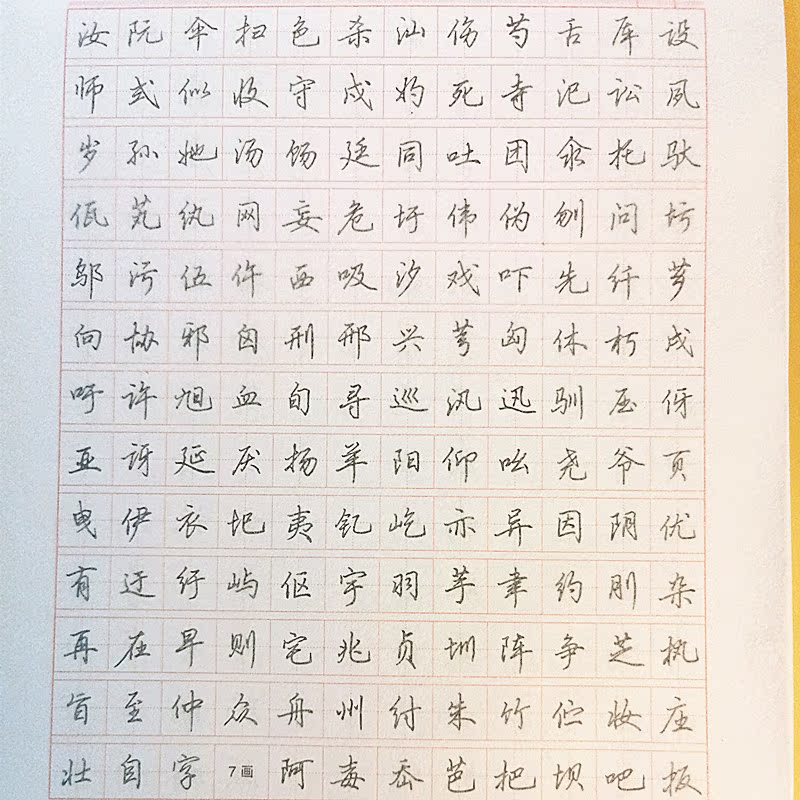 汝阮伞扫色杀汕伤芍舌厍设
师式似收守戍妁死寺汜讼夙
岁孙她汤饧廷同吐团氽托驮
佤芄纨网妄危圩伟伪刎问圬
邬污伍仵西吸汐戏吓先纤芗
向协邪囟刑邢兴芎匈休朽戌
吁许旭血旬寻巡汛迅驯压伢
亚讶延厌扬羊阳仰吆尧爷页
曳伊衣圯夷钇屹亦异因阴优
有迂纡屿伛宇羽芋聿约刖杂
再在早则宅兆贞圳阵争芝执
旨至仲众舟州纣朱竹伫妆庄
壮自字7画阿毐岙芭把坝吧扳